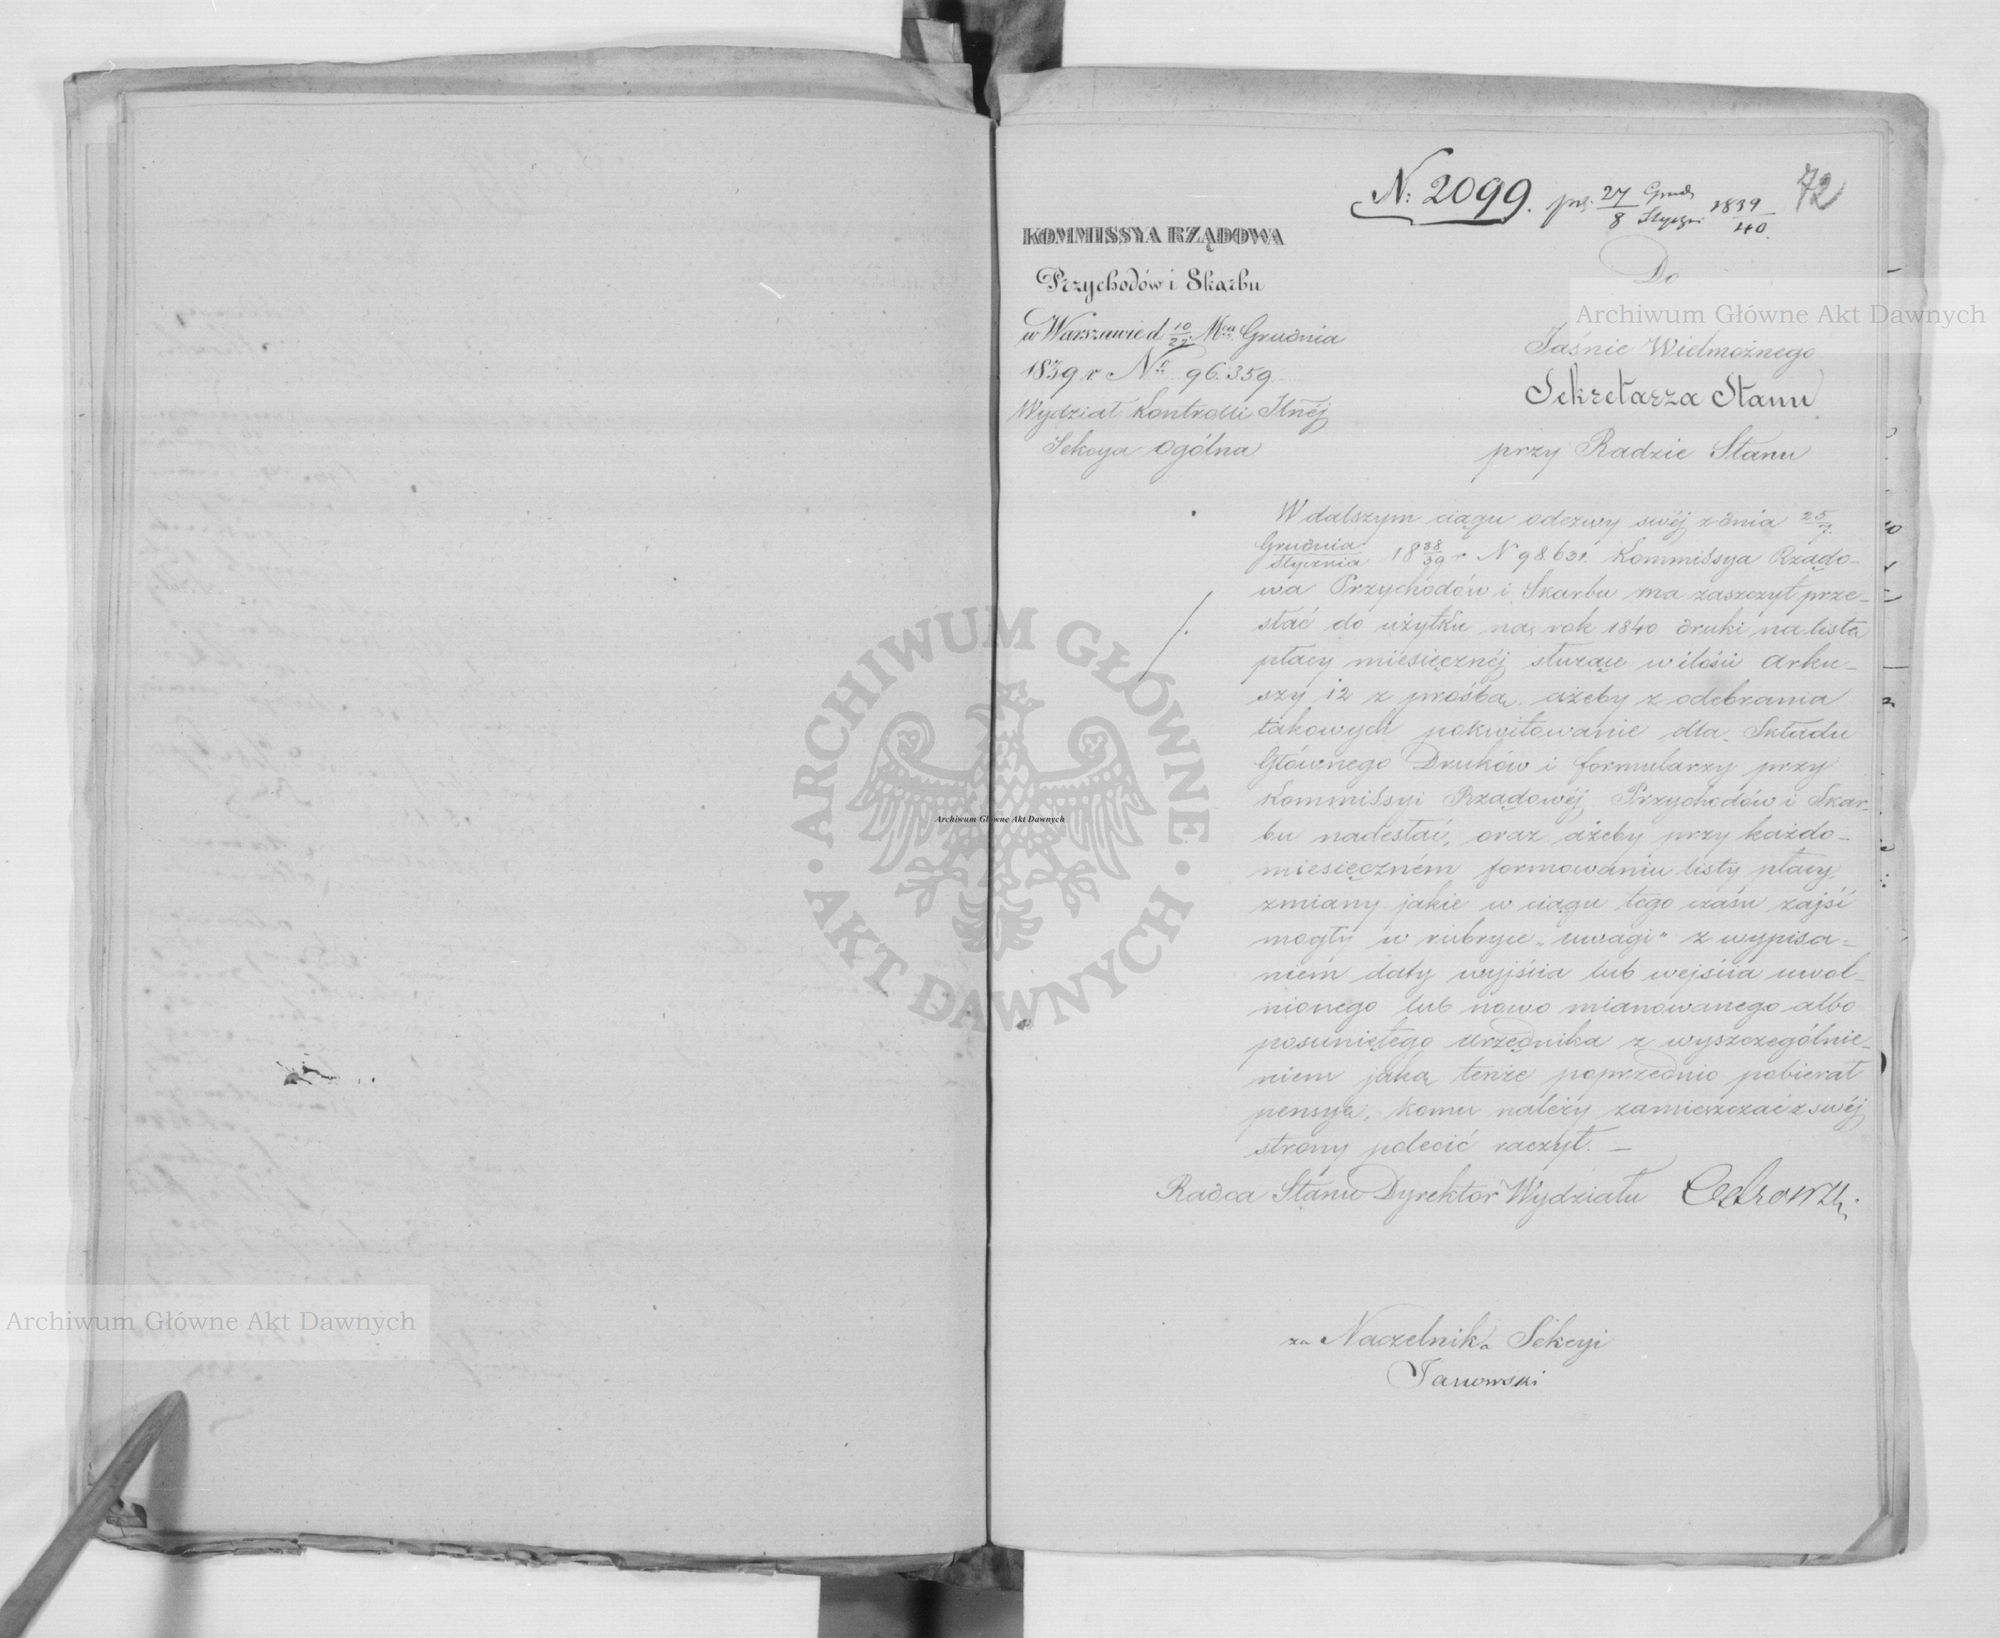 N: 2099. 27/8 Grud/Stycz: 1839/40.
72
KOMMISSYA RZĄDOWA
Przychodów i Skarbu
w Warszawie d 10/22 Mca Grudnia
1839 r No 96.359.
Wydział Kontrolli
Sekcya Ogólna
Do
Jaśnie Wielmożnego
Sekretarza Stanu
przy Radzie Stanu
W dalszym ciągu odezwy swéj z dnia 25/7.
Grudnia/Stycznia 18 38/39 r N 98.631. Kommissya Rządo-
wa Przychodów i Skarbu ma zaszczyt prze-
słać do użytku na rok 1840 druki na listę
płacy miesięcznéj służące w ilości arku-
szy 12 z prośbą, ażeby z odebrania
takowych pokwitowanie dla Składu
Głównego Druków i formularzy przy
Kommissyi Rządowéj Przychodów i Skar-
bu nadesłać, oraz ażeby przy każdo-
miesięczném formowaniu listy płacy,
zmiany jakie w ciągu tego czasu zajść
mogły w rubryce „uwagi" z wypisa-
niem daty wyjścia lub wejścia uwol-
nionego lub nowo mianowanego albo
posuniętego urzędnika z wyszczególnie-
niem jaką tenże poprzednio pobierał
pensyą, komu należy zamieszczać z swéj
strony polecić raczył. —
Radca Stanu Dyrektor Wydziału
za Naczelnika Sekcyi
Janowski
Archiwum Główne Akt Dawnych
ARCHIWUM GŁÓWNE AKT DAWNYCH
Archiwum Główne Akt Dawnych
Archiwum Główne Akt Dawnych